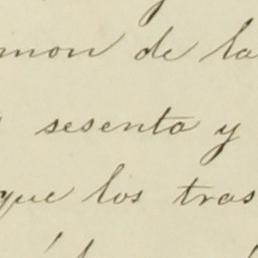 mon de la
sesenta y
que los tras